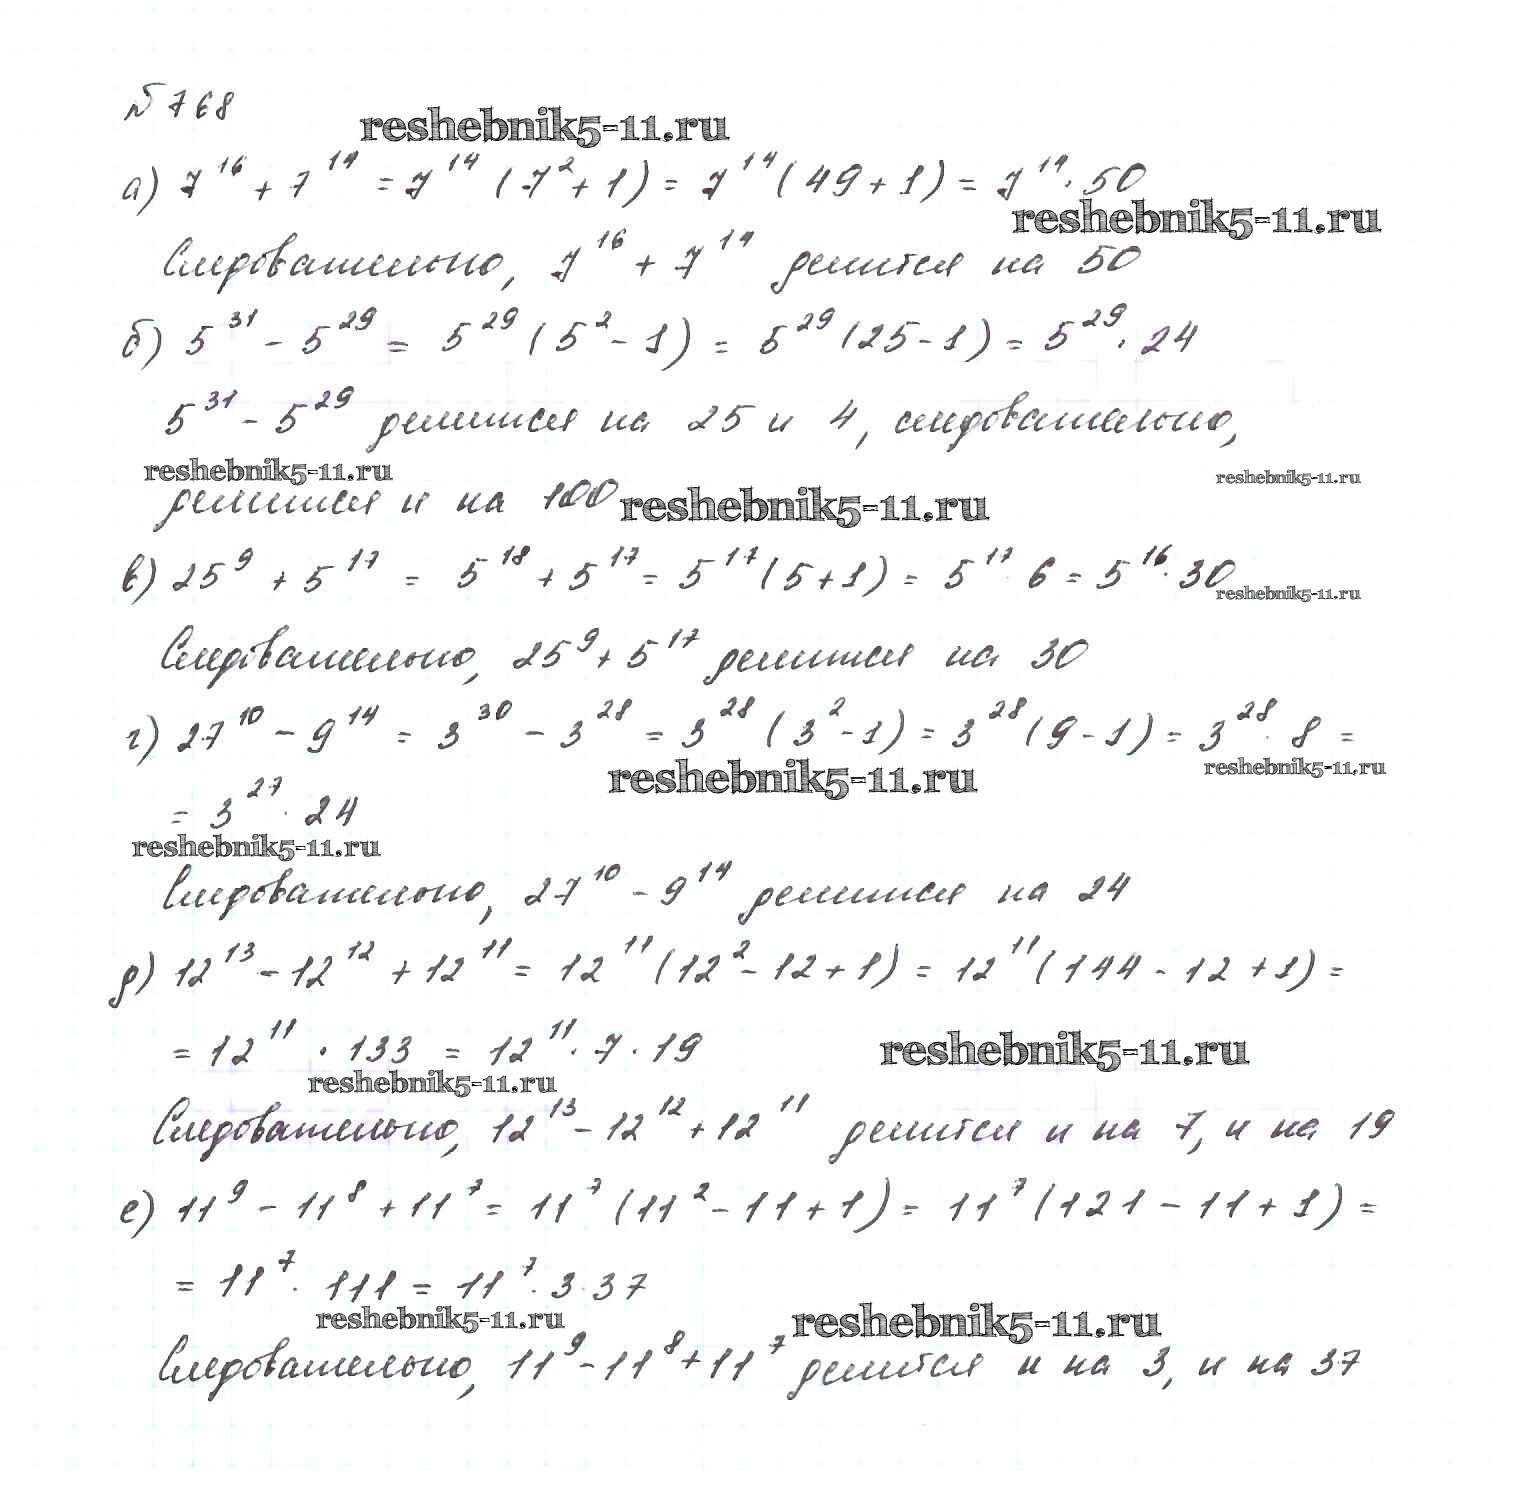 №768
reshebnik5-11.ru
а) 7¹⁶ + 7¹⁴ = 7¹⁴ (7² + 1) = 7¹⁴ (49 + 1) = 7¹⁴ · 50
reshebnik5-11.ru
Следовательно, 7¹⁶ + 7¹⁴ делится на 50
б) 5³¹ - 5²⁹ = 5²⁹ (5² - 1) = 5²⁹ (25 - 1) = 5²⁹ · 24
5³¹ - 5²⁹ делится на 25 и 4, следовательно,
reshebnik5-11.ru
reshebnik5-11.ru
делится и на 100
reshebnik5-11.ru
в) 25⁹ + 5¹⁷ = 5¹⁸ + 5¹⁷ = 5¹⁷ (5 + 1) = 5¹⁷ · 6 = 5¹⁶ · 30
reshebnik5-11.ru
Следовательно, 25⁹ + 5¹⁷ делится на 30
г) 27¹⁰ - 9¹⁴ = 3³⁰ - 3²⁸ = 3²⁸ (3² - 1) = 3²⁸ (9 - 1) = 3²⁸ · 8 =
reshebnik5-11.ru
reshebnik5-11.ru
= 3²⁷ · 24
reshebnik5-11.ru
Следовательно, 27¹⁰ - 9¹⁴ делится на 24
д) 12¹³ - 12¹² + 12¹¹ = 12¹¹ (12² - 12 + 1) = 12¹¹ (144 - 12 + 1) =
= 12¹¹ · 133 = 12¹¹ · 7 · 19
reshebnik5-11.ru
reshebnik5-11.ru
Следовательно, 12¹³ - 12¹² + 12¹¹ делится и на 7, и на 19
е) 11⁹ - 11⁸ + 11⁷ = 11⁷ (11² - 11 + 1) = 11⁷ (121 - 11 + 1) =
= 11⁷ · 111 = 11⁷ · 3 · 37
reshebnik5-11.ru
reshebnik5-11.ru
Следовательно, 11⁹ - 11⁸ + 11⁷ делится и на 3, и на 37